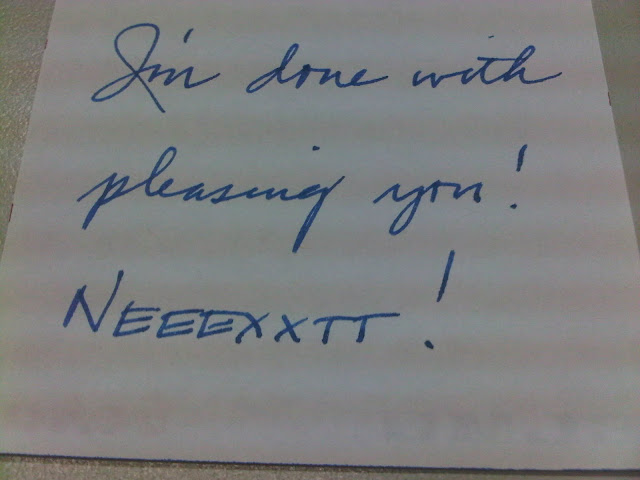 I'm done with
pleasing you!
NEEEXXTT!